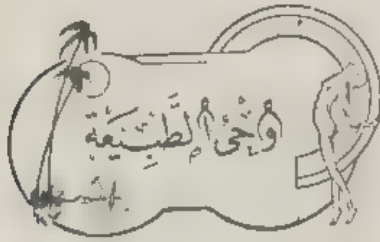 وَحْيُ الطَّبِيعَةِ